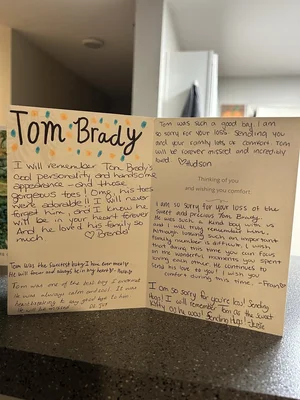 Tom Brady
I will remember Tom Brady's
cool personality and handsome
appearance - and those
gorgeous toes! Omg, his toes
were adorable!! I will never
forget him, and I know he
will be in your heart forever
And he loved his family so
much. ♡Brenda
Tom was the sweetest boy I have ever met.
He will forever and always be in my heart!
Tom was one of the best boys I
He was always calm and cool. It was
to say good bye to him
He will be missed.
Tom was such a good boy. I am
so sorry for your loss. Sending you
and your family lots of comfort. Tom
will be forever missed and incredibly
loved. ♡
Thinking of you
and wishing you comfort.
I am so sorry for your loss of the
sweet and precious Tom Brady.
He was such a kind boy with us
and I will truly remember him.
Although losing such an important
family member is difficult, I wish
that this time you can focus
on the wonderful moments you spent
loving each other. He continues to
send his love to you! I wish you
comfort during this time. -Fran♡
I am so sorry for your loss! Sending
Hugs! I will remember Tom as the sweet
kitty he was! Sending Hugs! -